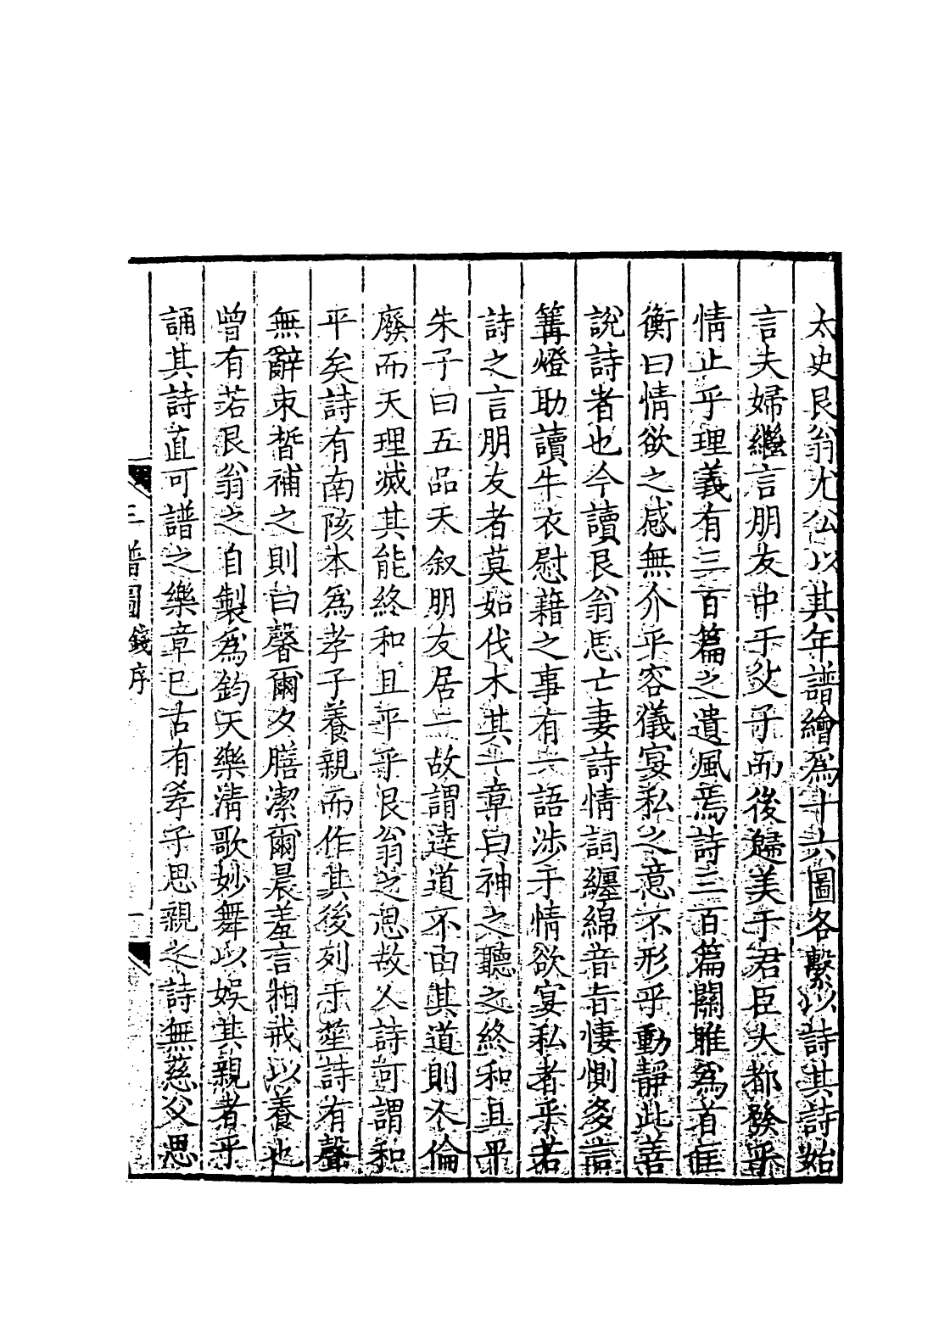 太史艮翁尤公以其年譜繪爲十六圖各繫以詩其詩始
言夫婦繼言朋友中于父子而後歸美于君臣大都發乎
情止乎理義有三百篇之遺風焉詩三百篇關雎爲首匡
衡曰情欲之感無介乎容儀宴私之意不形乎動靜此善
說詩者也今讀艮翁思亡妻詩情詞纏綿音旨悽惻多言
篝燈助讀牛衣慰藉之事有一語涉于情欲宴私者乎若
詩之言朋友者莫如伐木其一章曰神之聽之終和且平
朱子曰五品天叙朋友居一故謂逹道不由其道則人倫
廢而天理滅其能終和且平乎艮翁之思故人詩可謂和
平矣詩有南陔本爲孝子養親而作其後列于笙詩有聲
無辭束晳補之則曰馨爾夕膳潔爾晨羞言相戒以養也
曾有若艮翁之自製爲鈞天樂清歌妙舞以娛其親者乎
誦其詩直可譜之樂章已古有孝子思親之詩無慈父思
年譜圖詩序
一